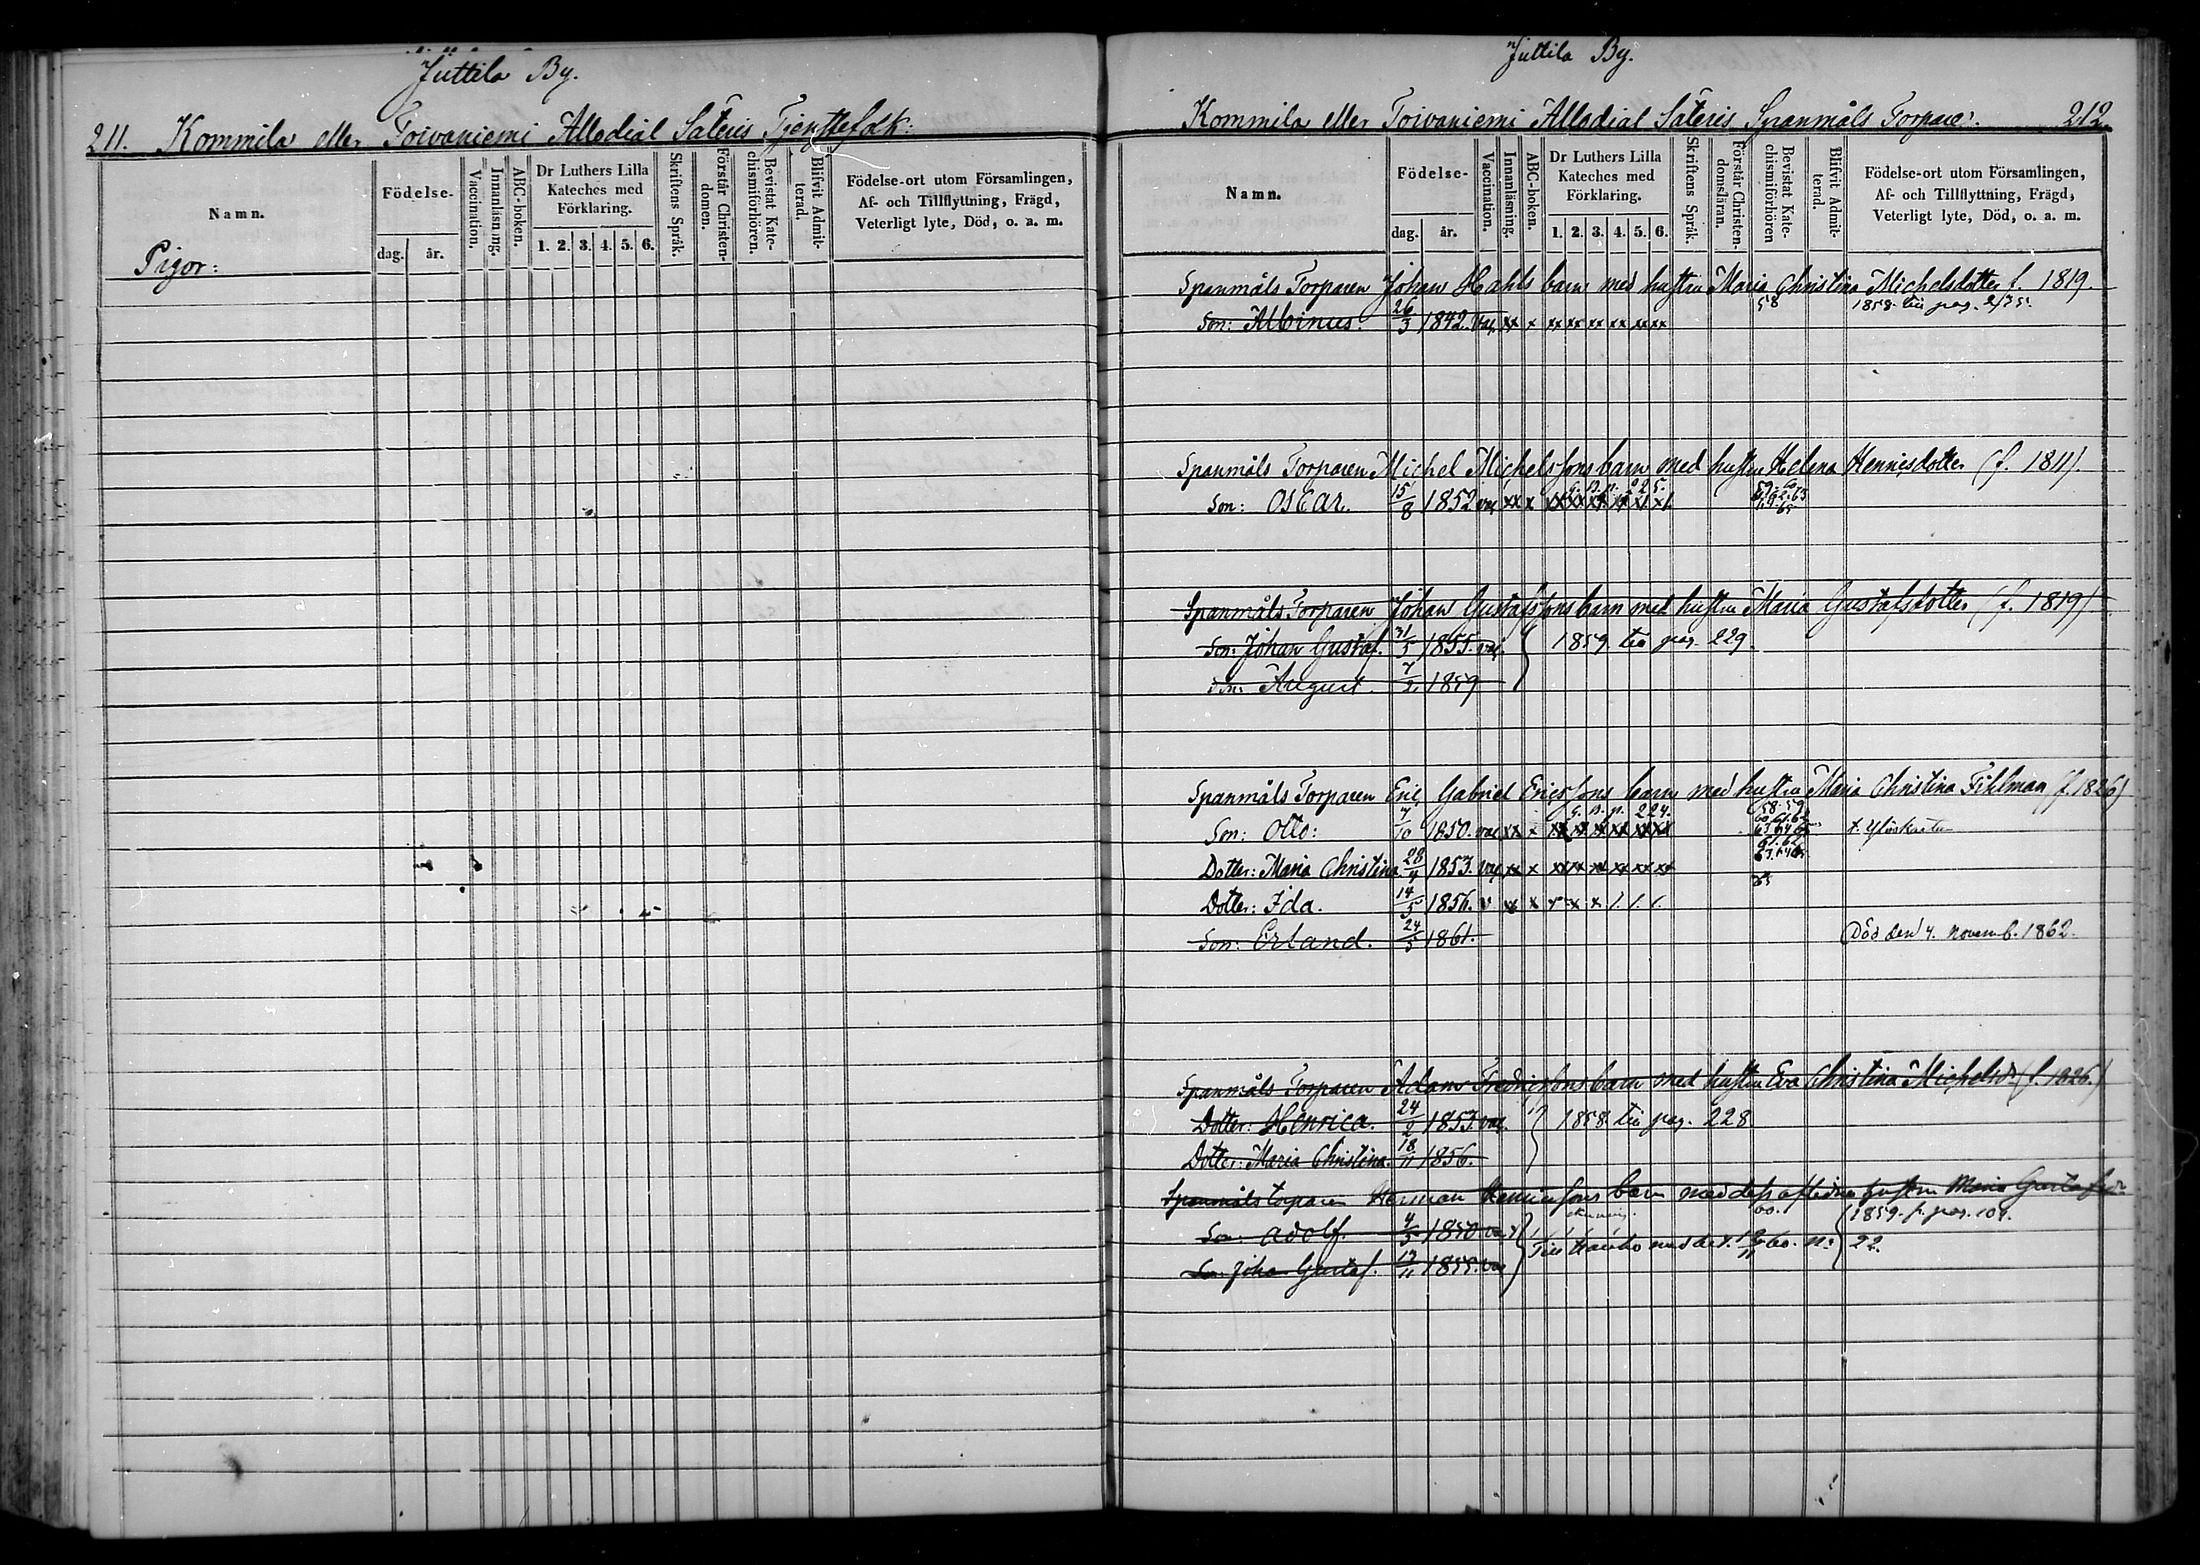 Juttila By.
211. Kommila eller Toivaniemi Allodial Säteris Tjenstefolk:
Namn.
Födelse-
dag. år.
Vaccination.
Innanläsning.
ABC-boken.
Dr Luthers Lilla Kateches med Förklaring.
1. 2. 3. 4. 5. 6.
Skriftens Språk.
Förstår Christendomen.
Bevistat Katechismiförhören.
Blifvit Admitterad.
Födelse-ort utom Församlingen,
Af- och Tillflyttning, Frägd,
Veterligt lyte, Död, o. a. m.
Pigor:
Juttila By.
Kommila eller Toivaniemi Allodial Säteris Spanmåls Torpare: 212.
Namn.
Födelse-
dag. år.
Vaccination.
Innanläsning.
ABC-boken.
Dr Luthers Lilla Kateches med Förklaring.
1. 2. 3. 4. 5. 6.
Skriftens Språk.
Förstår Christendomsläran.
Bevistat Katechismiförhören
Blifvit Admitterad.
Födelse-ort utom Församlingen,
Af- och Tillflyttning, Frägd,
Veterligt lyte, Död, o. a. m.
Spanmåls Torparen Johan Hahls barn med hustru Maria Christina Michelsdotter f. 1819.
Son: Albinus. 26/3 1842. vac. xx x xx xx xx xx xx xx 58 1858 till pag. 235.
Spanmåls Torparen Michel Michelssons barn med hustru Helena Hennisdotter (f. 1811).
G. B. p. 225.
Son: Oscar. 15/8 1852 vac xx x
Spanmåls Torparen Johan Gustafssons barn med hustru Maria Gustafsdotter (f. 1819)
Son: Johan Gustaf. 31/5 1855. vac. 1859 till pag. 229.
Son: August. 7/2 1859
Spanmåls Torparen Eric Gabriel Ericssons barn med hustru Maria Christina Fihlman (f. 1826)
G. B. p. 224. 58. 59
Son: Otto: 7/10 1850. vac xx x
Dotter: Maria Christina 28/4 1853. vac xx x
Dotter: Ida. 14/5 1856. v x x
Son: Erland. 24/5 1861. Död den 4. novemb. 1862.
Spanmåls Torparen Adam Fredricssons barn med hustru Eva Christina Michelsdr (f. 1826.)
Dotter: Henrica. 24/2 1853 vac. 1858 till pag. 228
Dotter: Maria Christina. 18/11 1856.
Spanmåls torparen Herman barn med dess aflidna hustru Maria Gustafsdr
60. 1859. f. pag. 109.
Son: Adolf. 4/5 1850 vac
Till med bet. 60. N: 22.
Son: Johan Gustaf. 13/11 1855. vac